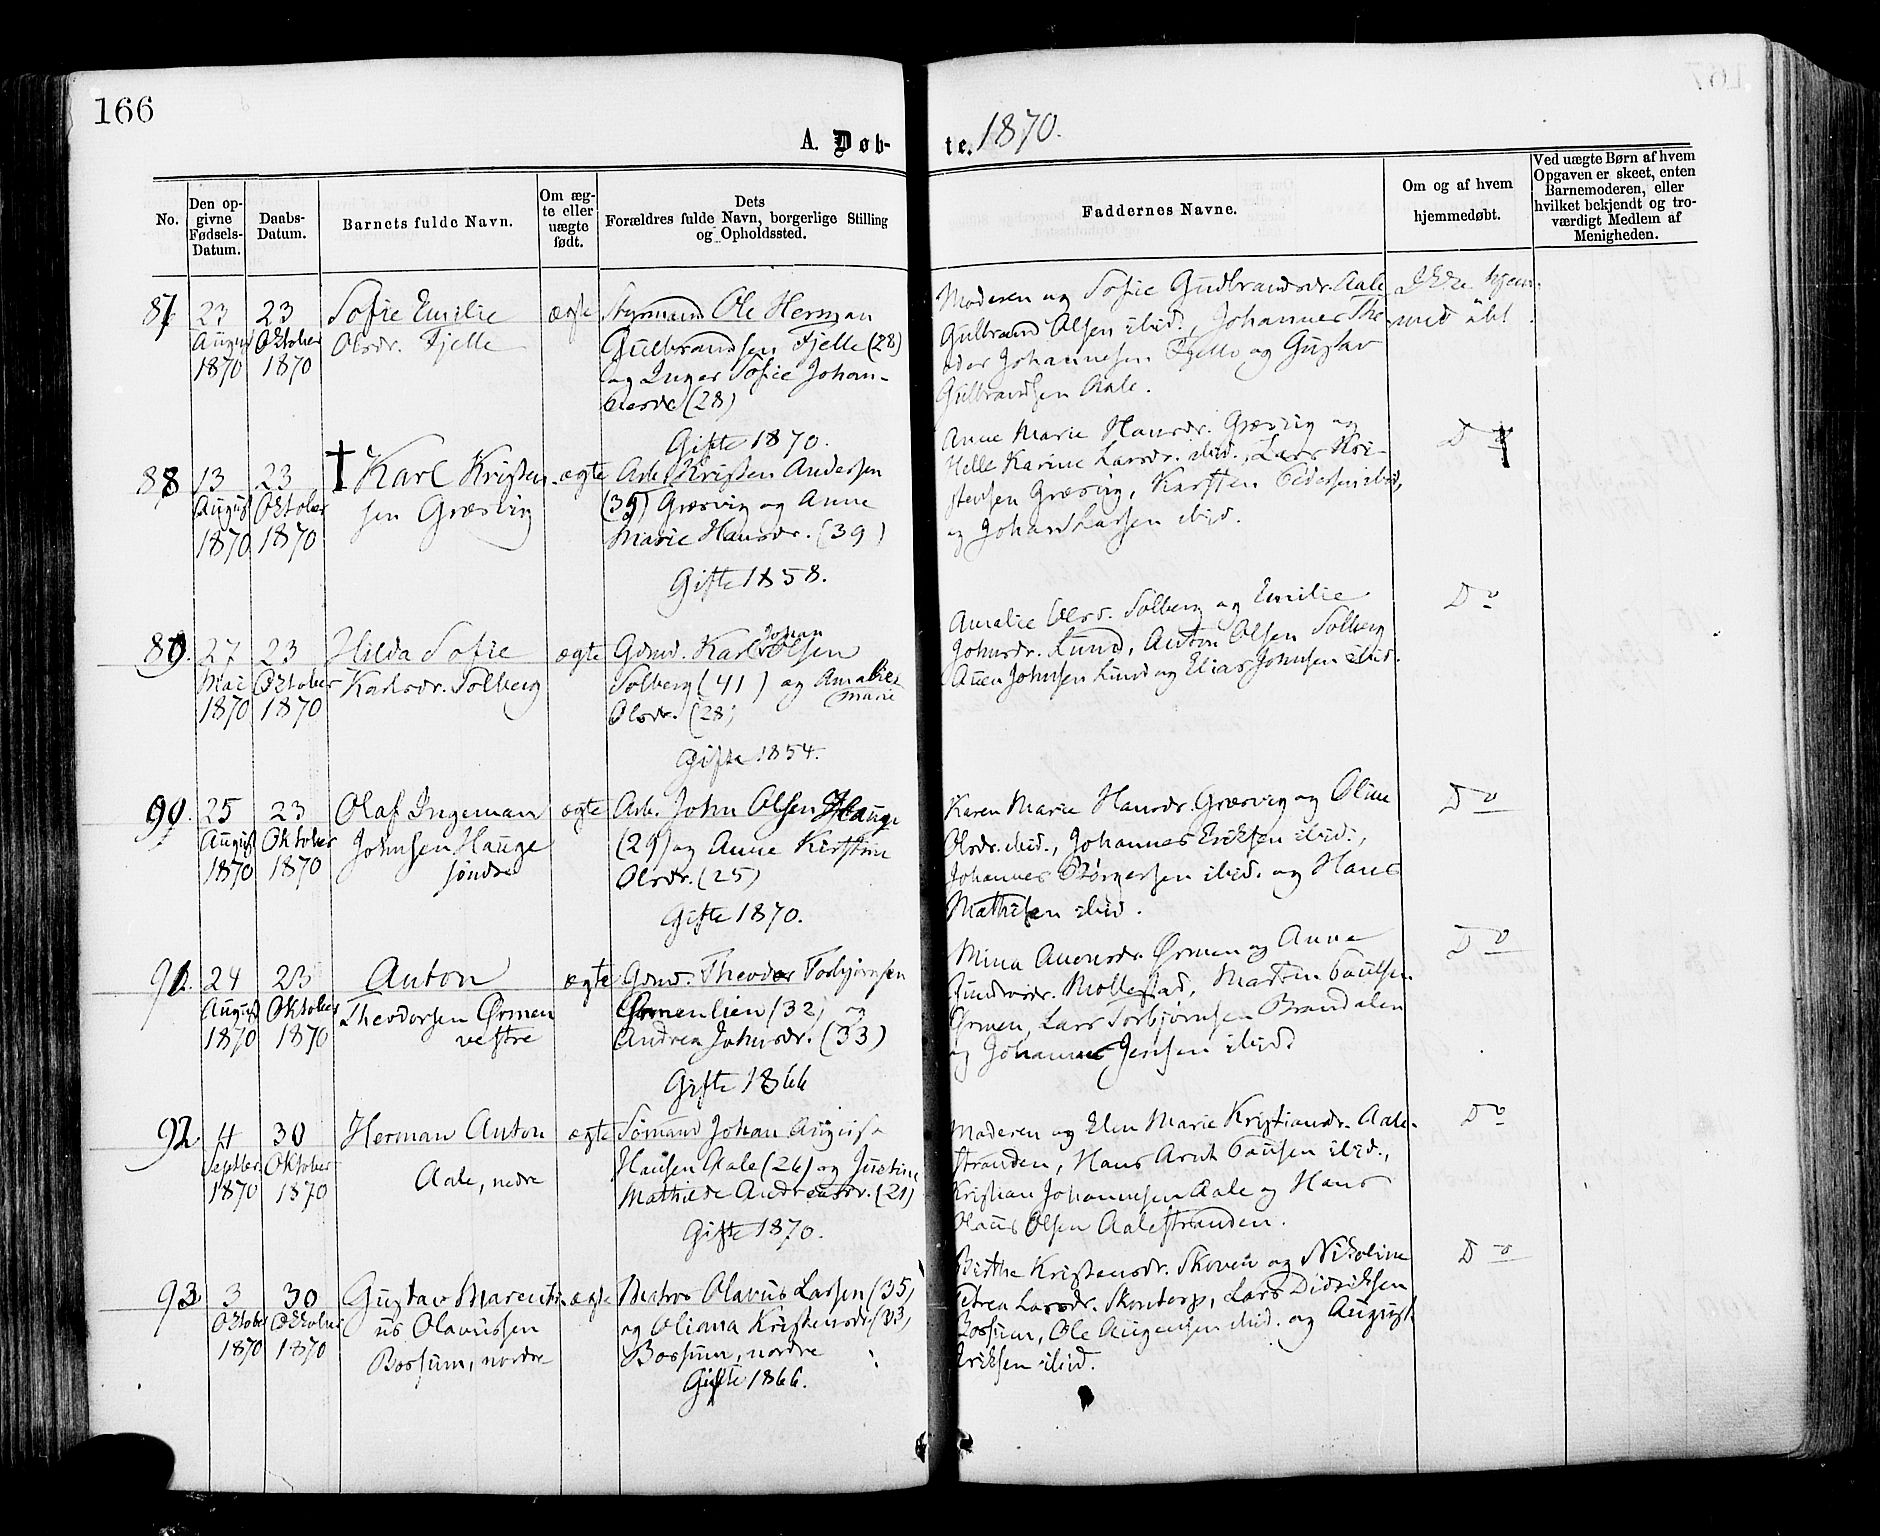 166
A. Døb-
te. 1870.
No.
Den op-
givne
Fødsels-
Datum.
Daabs-
Datum.
Barnets fulde Navn.
Om æg-
te eller
uægte
født.
Dets
Forældres fulde Navn, borgerlige Stilling
og Opholdssted.
Faddernes Navne.
Om og af hvem
hjemmedøbt.
Ved uægte Børn af hvem
Opgaven er skeet, enten
Barnemoderen, eller
hvilket bekjendt og tro-
værdigt Medlem af
Menigheden.
87
23
August
1870
23
Oktober
1870
Sofie Emilie
Olsdr. Fjelle
ægte
Styrmand Ole Herman
Gulbrandsen Fjelle (28)
og Inger Sofie Johan-
nesdr (28)
Gifte 1870.
Moderen og Sofie Gudbrandsdr. Aale
Gulbrand Olsen ibid., Johannes The-
odor Johannesen Fjelle og Gustav
Gulbrandsen Aale.
Ikke hjem-
med øbt.
88
13
August
1870
23
Oktober
1870
† Karl Kristen-
sen Græsvig
ægte
Arb. Kristen Andersen
(35) Græsvig og Anne
Marie Hansdr. (39)
Gifte 1858.
Anne Marie Hansdr. Græsvig og
Helle Karine Larsdr. ibid., Lars Kri-
stensen Græsvig, Karsten Pedersen ibid,
og Johan Larsen ibid.
Do
89.
27
Mai
1870
23
Oktober
1870
Hilda Sofie
Karlsdr. Solberg
ægte
Gdmd. Karl Johan Olsen
Solberg (41) og Amalie
Marie
Olsdr. (28)
Gifte 1854.
Amalie Olsdr. Solberg og Emilie
Johnsdr. Lund, Anton Olsen Solberg
Auen Johnsen Lund og Elias Johnsen ibid.
Do
90.
25
August
1870
23
Oktober
1870
Olaf Ingeman
Johnsen Hauge
søndre
ægte
Arb. John Olsen Hauge
(29) og Anne Kirstine
Olsdr. (25)
Gifte 1870.
Karen Marie Hansdr. Græsvig og Oline
Olsdr. ibid., Johannes Eriksen ibid.,
Johannes Børgersen ibid. og Hans
Mathisen ibid.
Do
91.
24
August
1870
23
Oktober
1870
Anton
Theodorsen Ørmen
vestre
ægte
Gdmd. Theodor Torbjørnsen
Ørmenlien (32) og
Andrea Johnsdr. (33)
Gifte 1866
Mina Auensdr. Ørmen og Anne
Mollestad, Martin Paulsen
Ørmen, Lars Torbjørnsen Brandalen
og Johannes Jensen ibid.
Do
92
4
Septber
1870
30
Oktober
1870
Herman Anton
Aale, nedre
ægte
Sømand Johan August
Hansen Aale (26) og Justine
Mathilde Andreasdr. (21)
Gifte 1870.
Moderen og Elen Marie Kristiansdr. Aale-
stranden, Hans Arnt Paulsen ibid.,
Kristian Johannesen Aale og Hans
Olaus Olsen Aalestranden.
Do
93
3
Oktober
1870
30
Oktober
1870
Gustav Marenti-
us Olavussen
Bossum, nordre
ægte
Matros Olavus Larsen (35)
og Oliana Kristensdr. (33)
Bossum, nordre
Gifte 1866.
Birthe Kristensdr. Skoven og Nikoline
Petrea Larsdr. Skontorp, Lars Didriksen
Bossum, Ole Augensen ibid. og August
Eriksen ibid.
Do